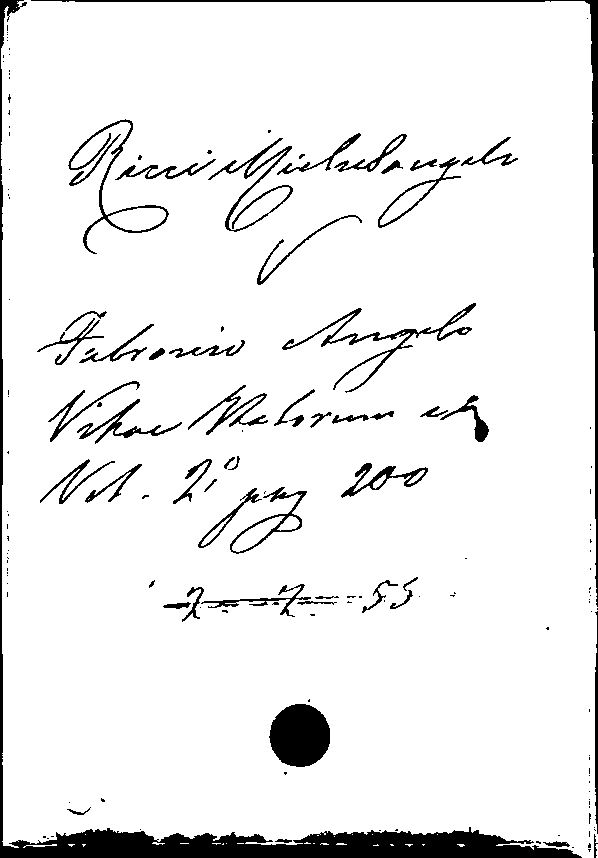 Ricci Michelangelo
Fabronio Angelo
Vitae Italorum etc
Vol. 2° pag 200
2 2 55